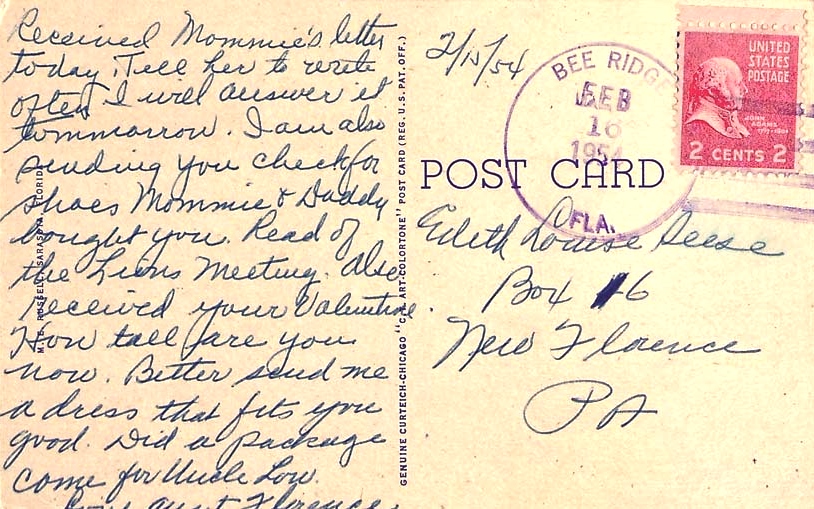 Received Mommie's letter
today. Tell her to write
often I will answer it
tommorrow. I am also
sending you check for
shoes Mommie & Daddy
bought you. Read of
the Lions Meeting. Also
received your Valentine.
How tall are you
now. Better send me
a dress that fits you
good. Did a package
come for Uncle Lou.
Love Aunt Florence
M. E. RUSSELL, SARASOTA, FLORIDA
GENUINE CURTEICH-CHICAGO "C. T. ART-COLORTONE" POST CARD (REG. U.S. PAT. OFF.)
2/15/54
BEE RIDGE
FEB
16
1954
FLA.
UNITED
STATES
POSTAGE
JOHN
ADAMS
2 CENTS 2
POST CARD
Edith Louise Reese
Box 6
New Florence
PA